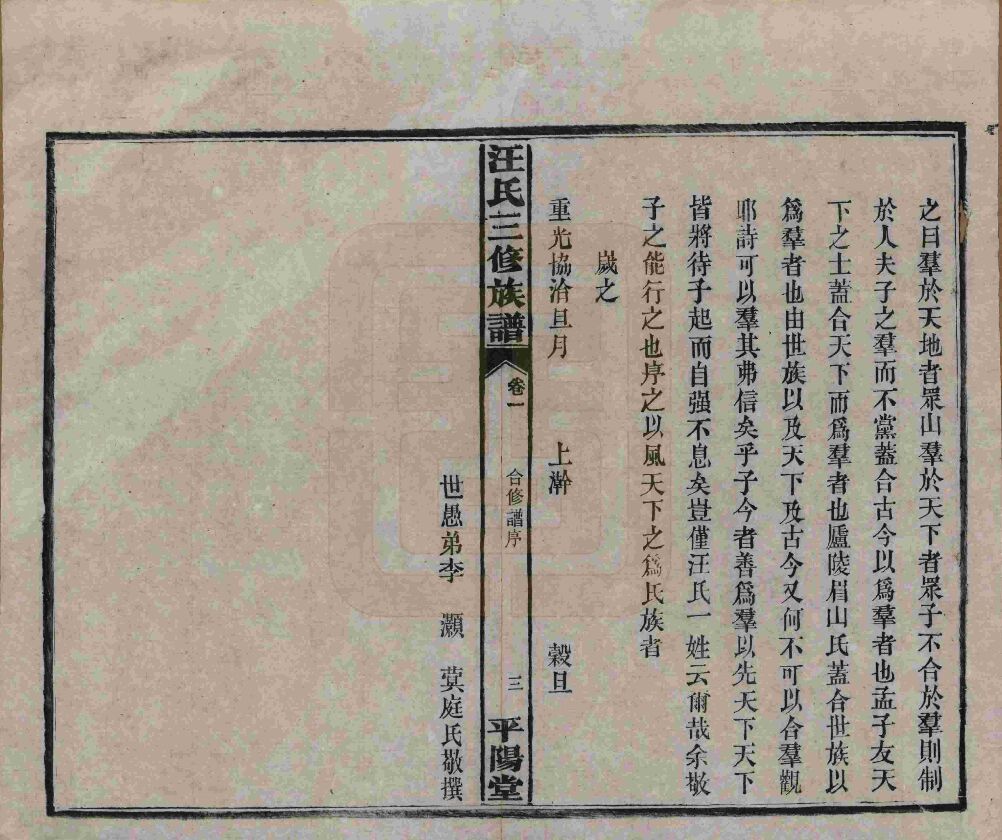 之曰羣於天地者眾山羣於天下者眾子不合於羣則制
於人夫子之羣而不黨蓋合古今以爲羣者也孟子友天
下之士蓋合天下而爲羣者也廬陵眉山氏蓋合世族以
爲羣者也由世族以及天下及古今又何不可以合羣觀
耶詩可以羣其弗信矣乎子今者善爲羣以先天下天下
皆將待子起而自强不息矣豈僅汪氏一姓云爾哉余敬
子之能行之也序之以風天下之爲氏族者
歲之
重光協洽旦月 上澣 穀旦
汪氏三修族譜 卷一 合修譜序 三 平陽堂
世愚弟李 灝 蓂庭氏敬撰